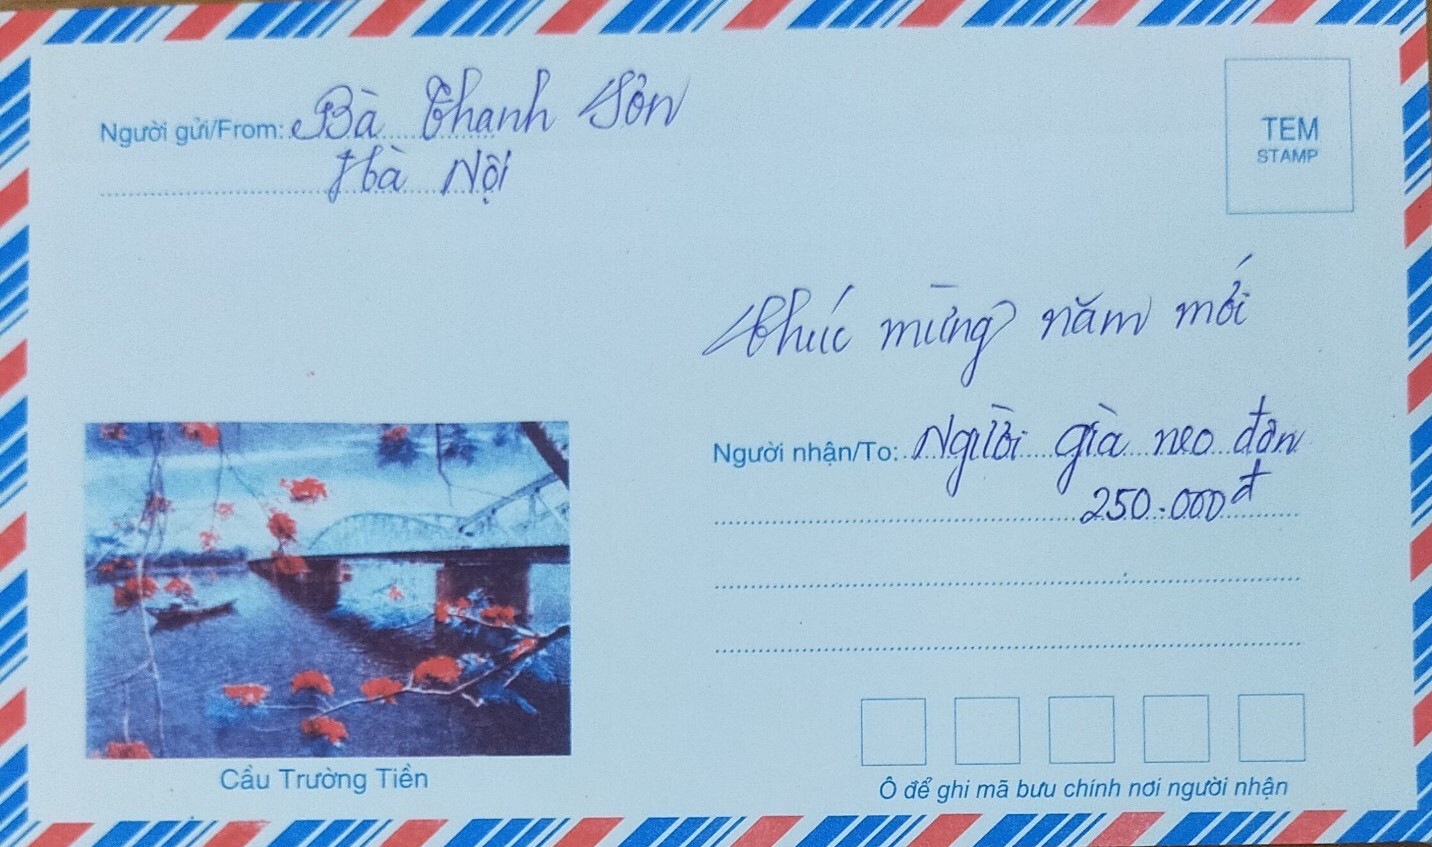 Người gửi/From: Bà Thanh Sơn
Hà Nội
TEM
STAMP
Chúc mừng năm mới
Người nhận/To: Người già neo đơn
250.000đ
Cầu Trường Tiền
Ô để ghi mã bưu chính nơi người nhận